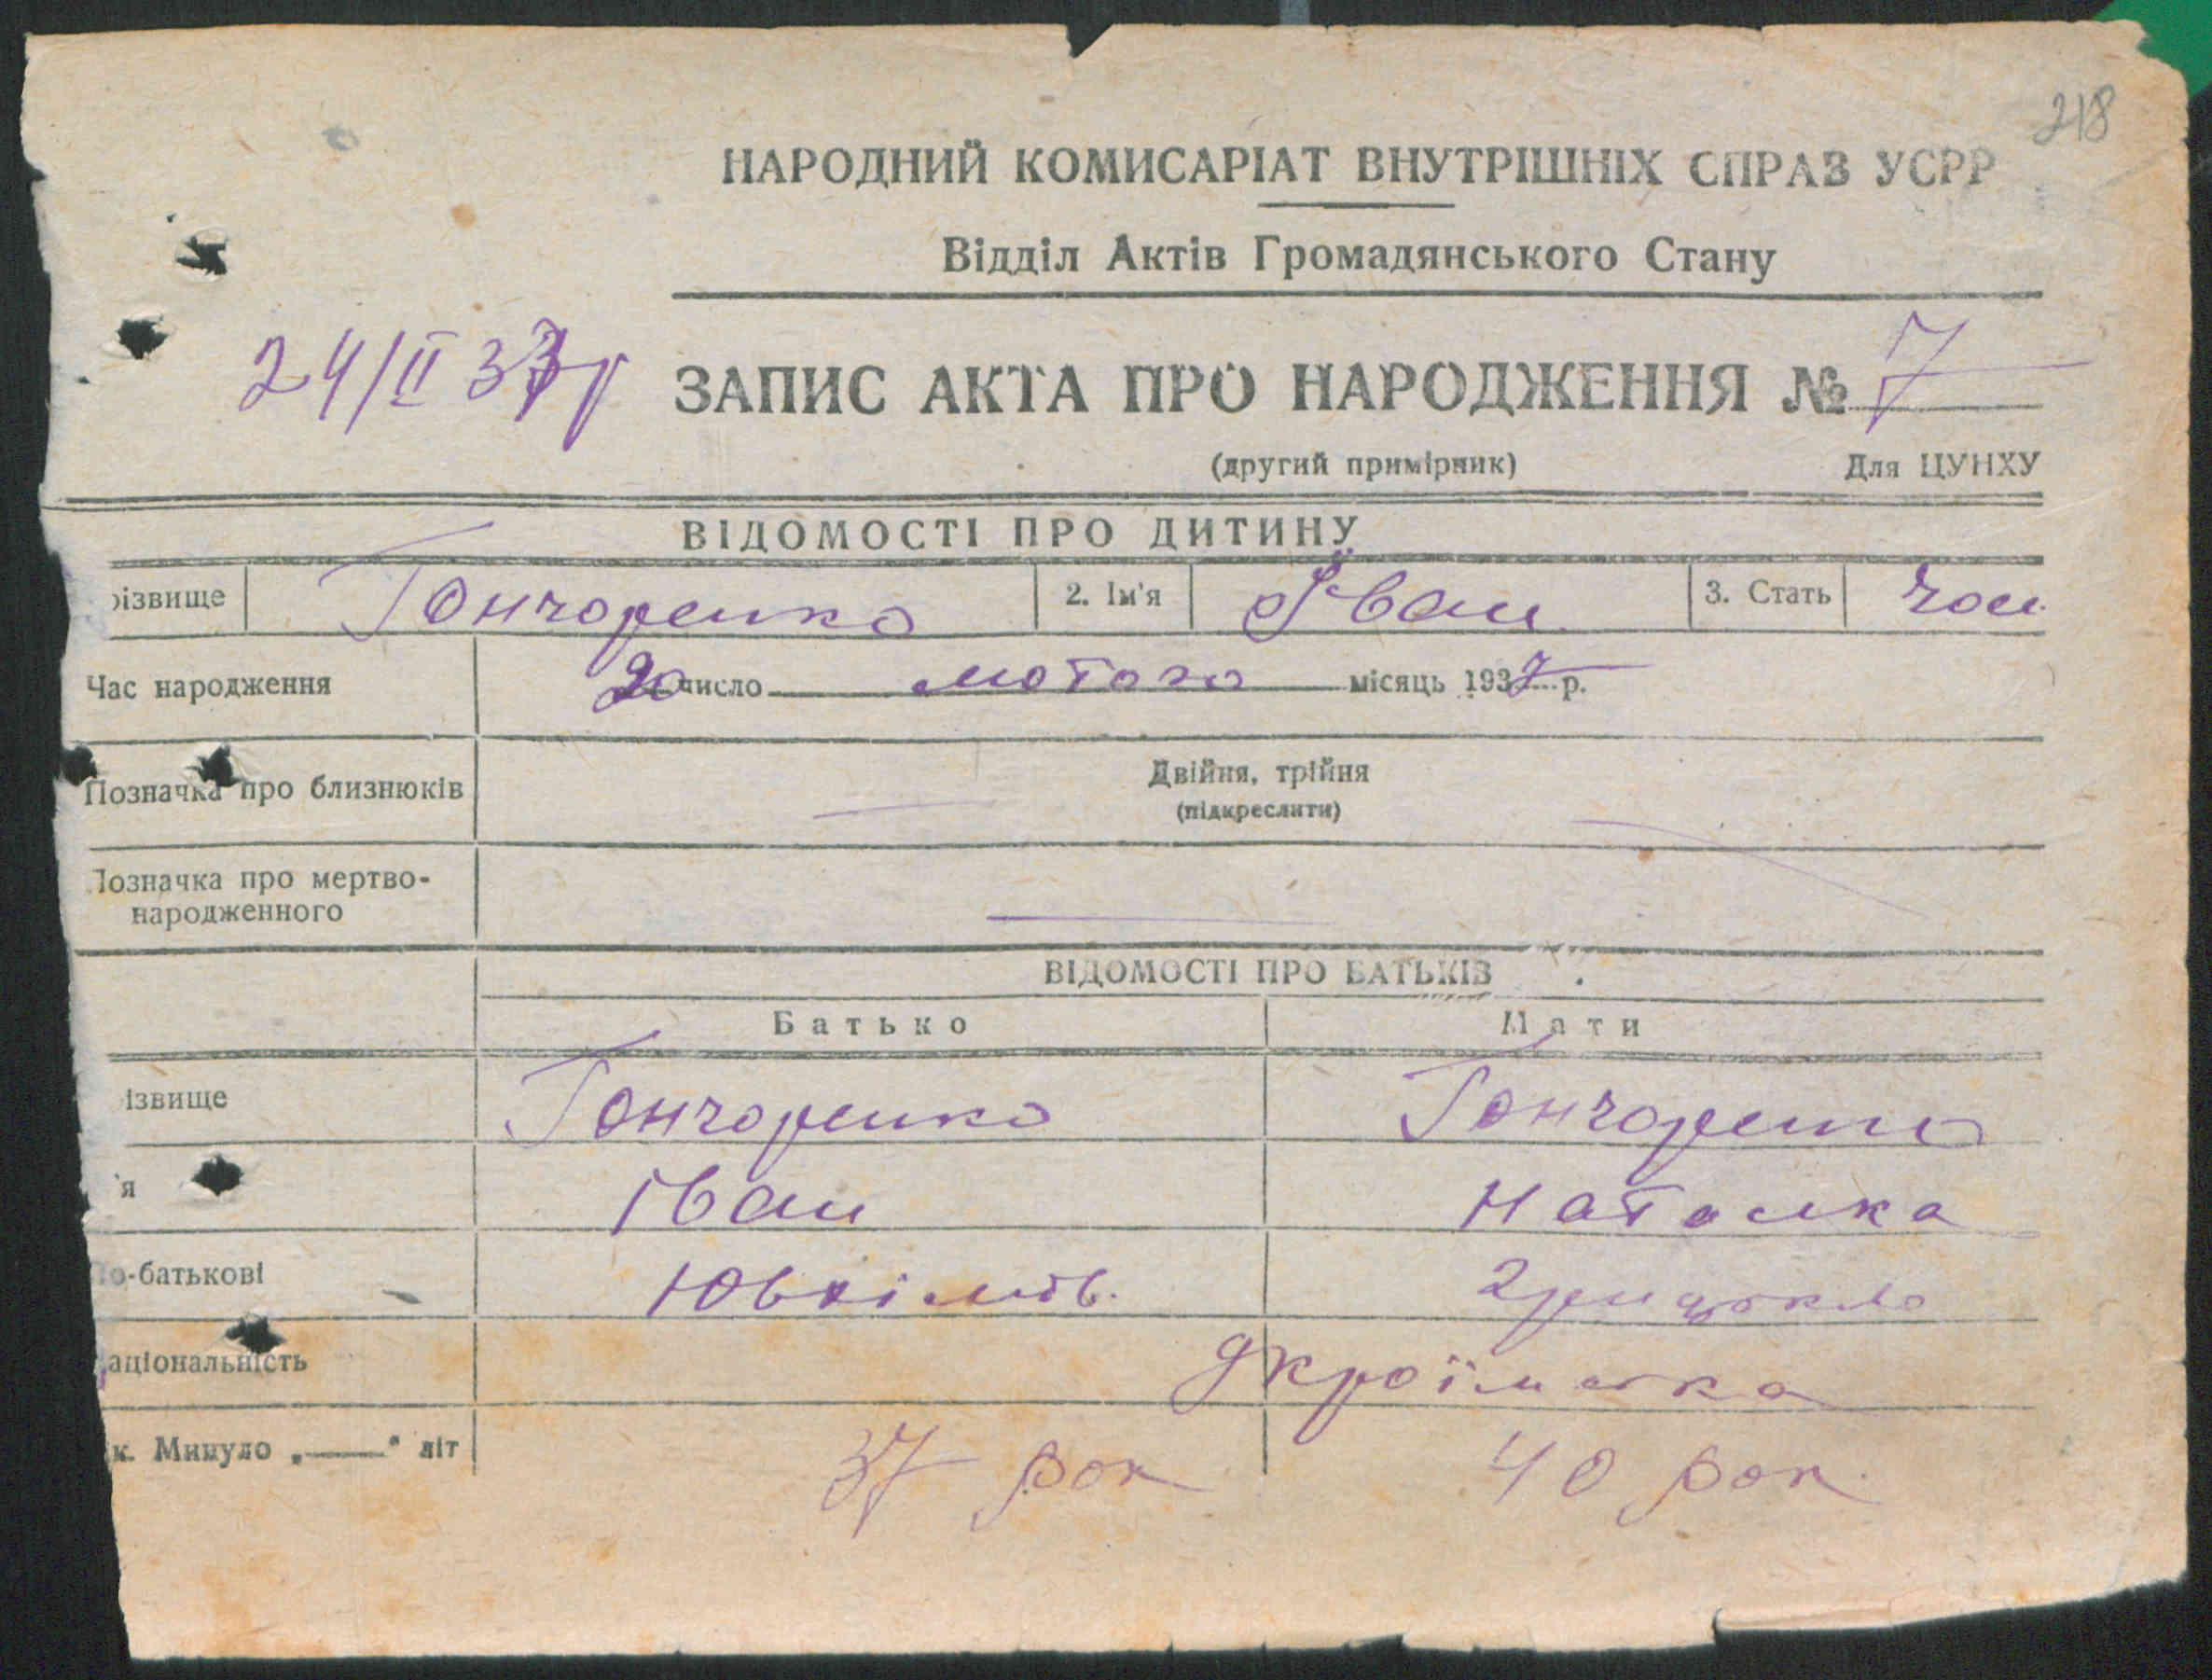 218
НАРОДНИЙ КОМИСАРІАТ ВНУТРІШНІХ СПРАВ УСРР
Відділ Актів Громадянського Стану
24/II 37р ЗАПИС АКТА ПРО НАРОДЖЕННЯ № 7
(другий примірник) Для ЦУНХУ
ВІДОМОСТІ ПРО ДИТИНУ
різвище Гончоренко 2. Ім'я Іван 3. Стать чол.
Час народження 20 число лютого місяць 1937 р.
Позначка про близнюків Двійня, трійня
(підкреслити)
Позначка про мертво-
народженного
ВІДОМОСТІ ПРО БАТЬКІВ
Батько Мати
ізвище Гончоренко Гончоренко
'я Іван Наталка
По-батькові Ювхімів.
аціональність Українська
к. Минуло „—" літ 37 рок 40 рок.